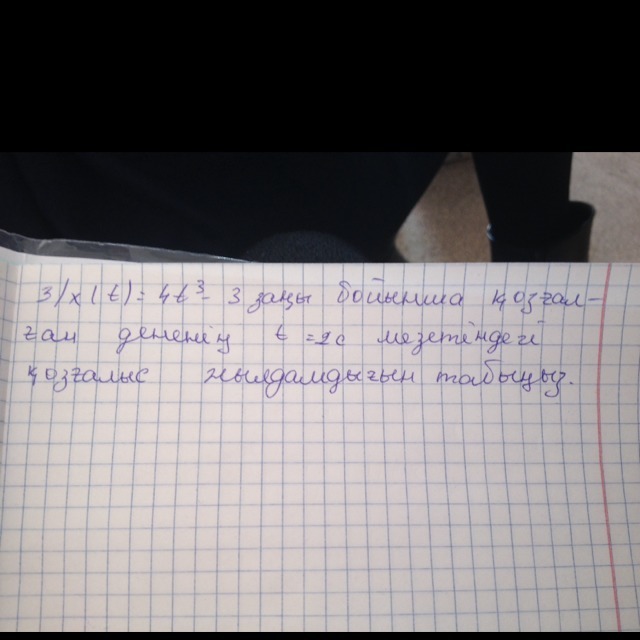 3/ x(t)= 4t³- 3 заңы бойынша қозғал-
ған дененің t =2с мезетіндегі
қозғалыс жылдамдығын табыңыз.